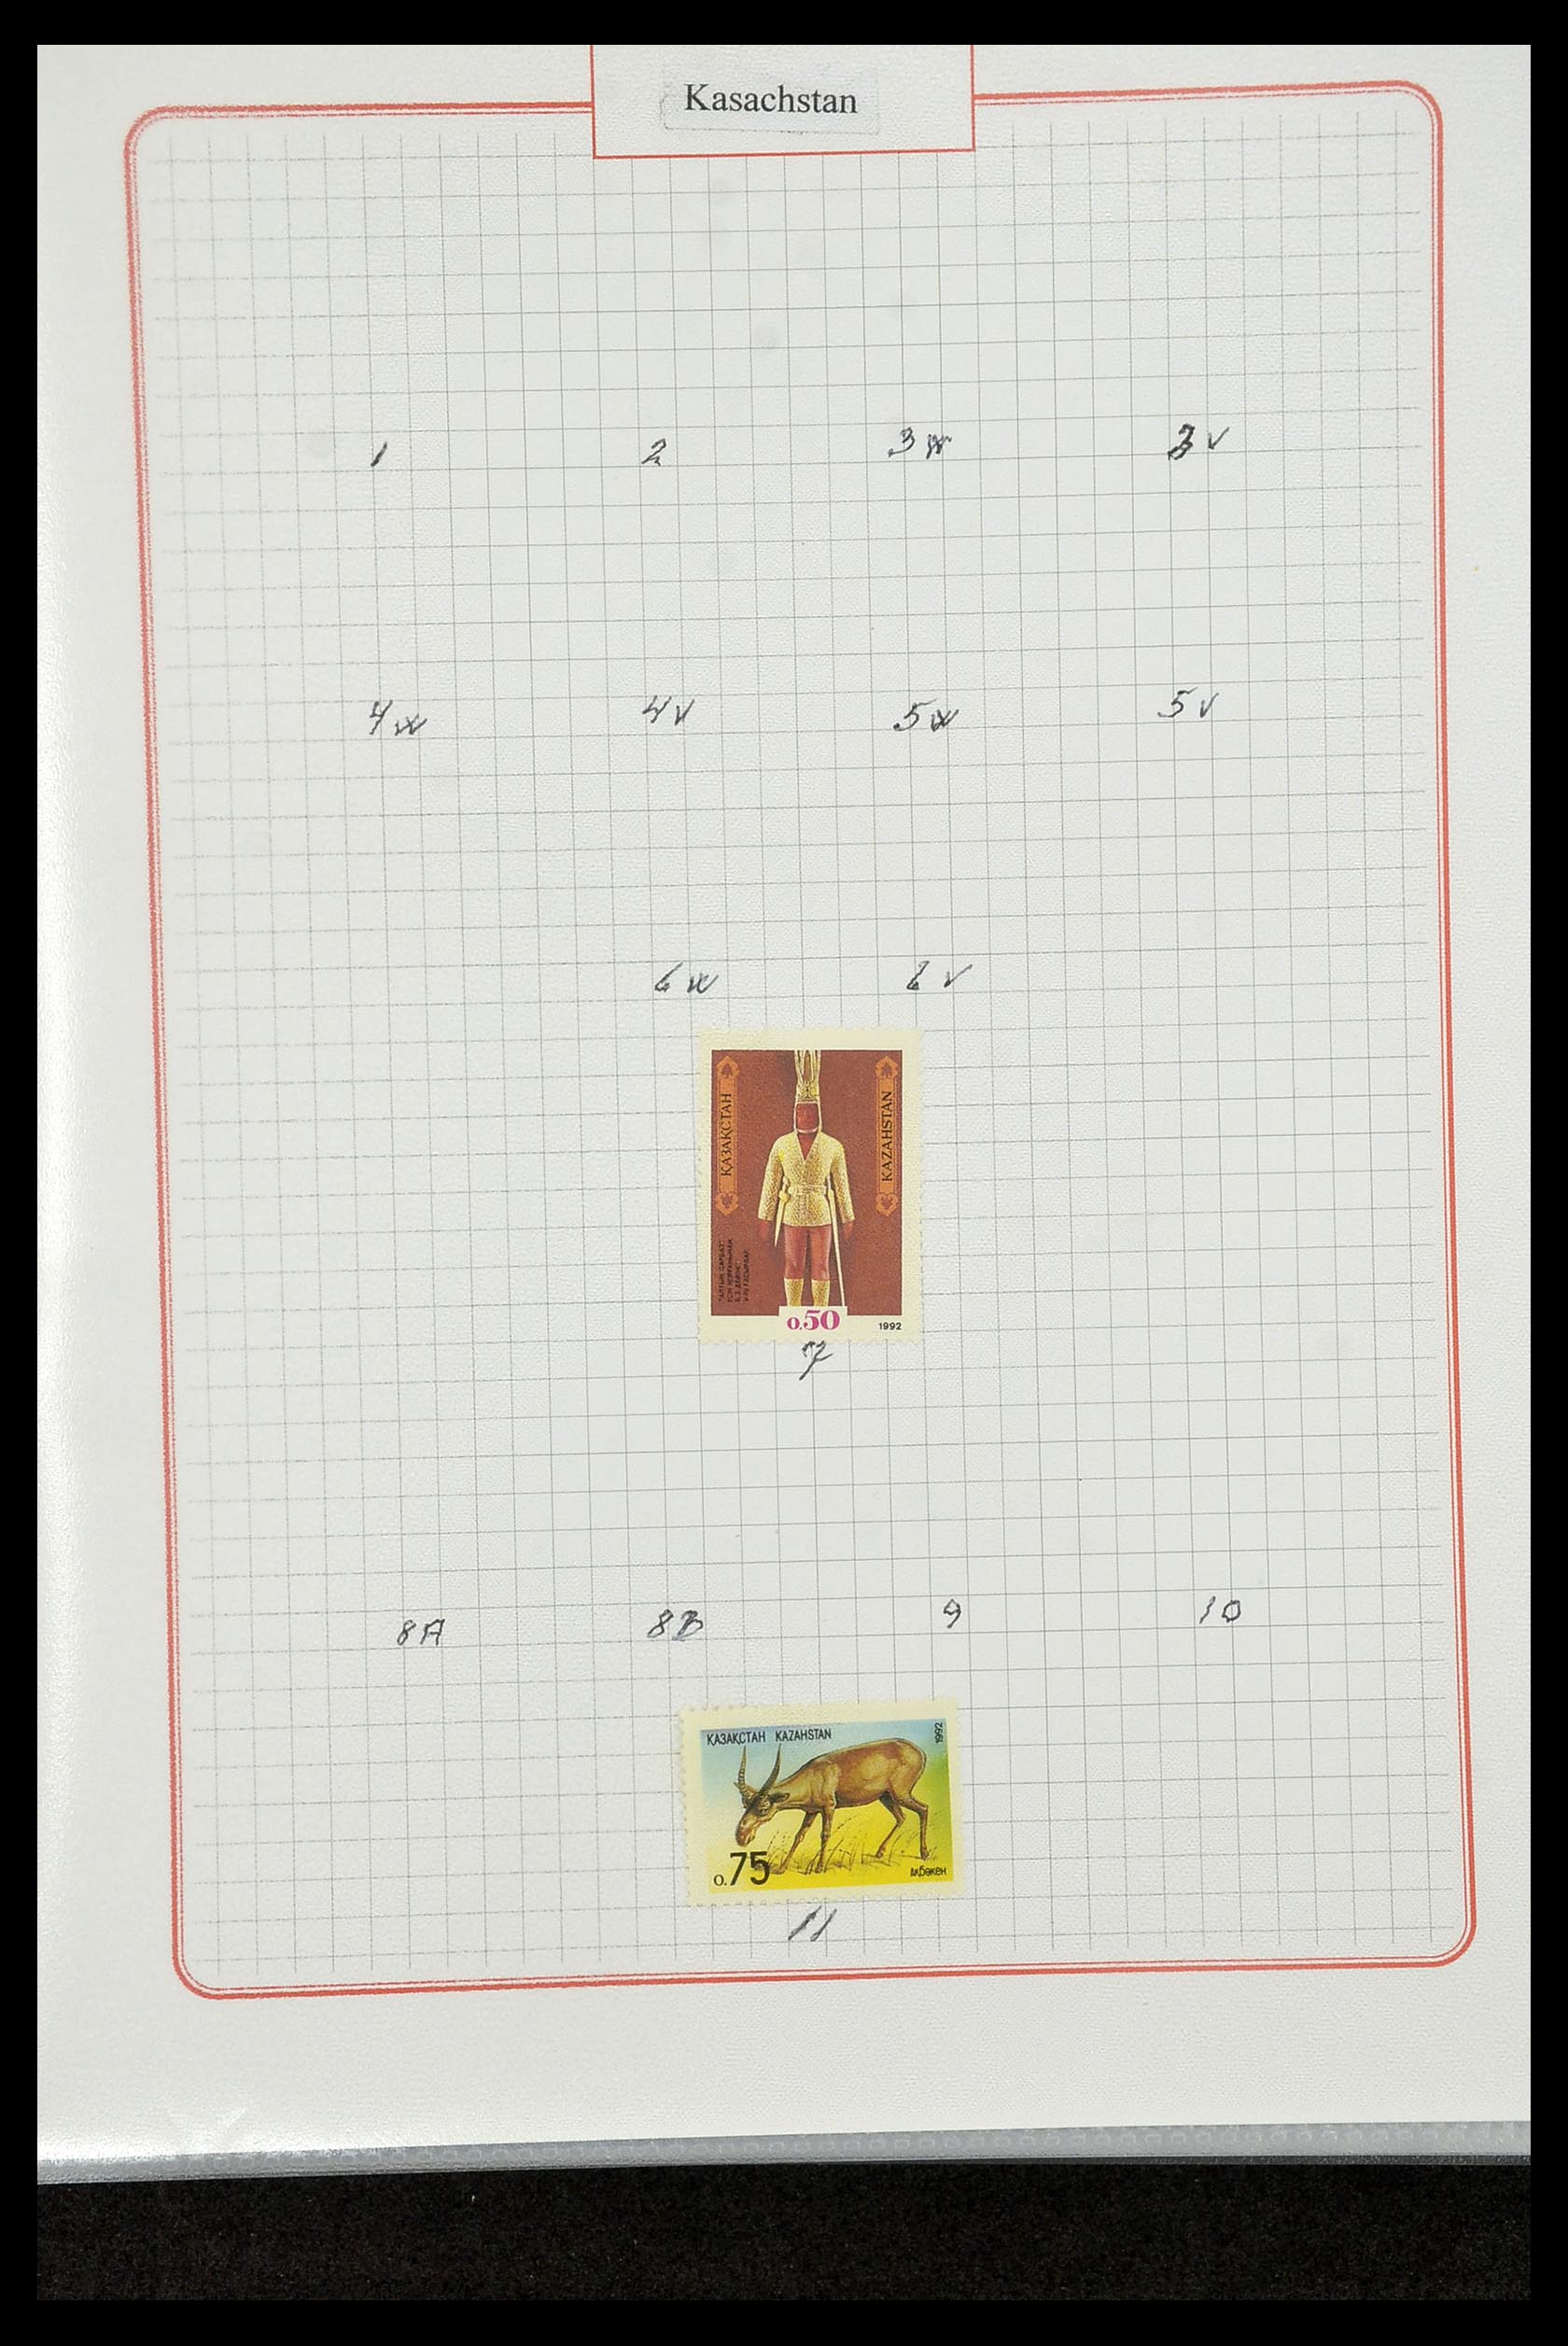 Kasachstan
1 2 3w 3v
4w 4v 5w 5v
6w 6v
ҚАЗАҚСТАН
KAZAHSTAN
0.50
1992
7
8A 8B 9 10
ҚАЗАҚСТАН KAZAHSTAN
1992
0.75
Ақбөкен
11